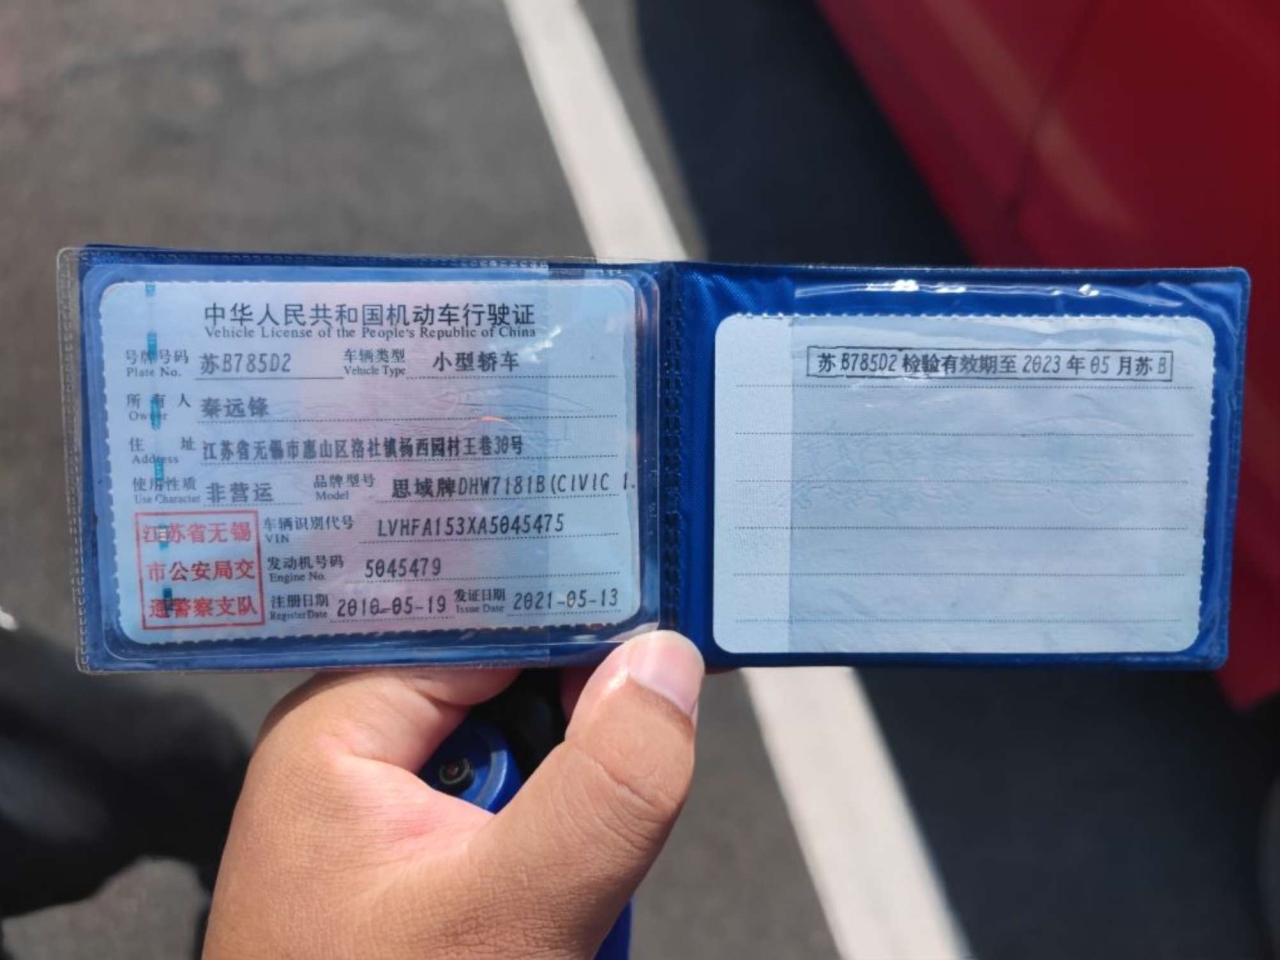 中华人民共和国机动车行驶证
Vehicle License of the People's Republic of China
号牌号码 苏B785D2 车辆类型 小型轿车
Plate No. Vehicle Type
所有人 秦远锋
Owner
住址 江苏省无锡市惠山区洛社镇杨西园村王巷30号
Address
使用性质 非营运 品牌型号 思域牌DHW7181B(CIVIC 1.
Use Character Model
车辆识别代号 LVHFA153XA5045475
VIN
发动机号码 5045479
Engine No.
注册日期 2010-05-19 发证日期 2021-05-13
Register Date Issue Date
江苏省无锡
市公安局交
通警察支队
苏B785D2检验有效期至2023年05月苏B